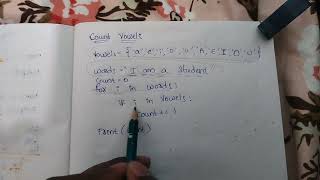 Count Vowels
Vowels = {'a','e','i','o','u','A','E','I','O','U'}
words = "I am a student"
Count = 0
for i in words:
if i in vowels:
count += 1
Print (